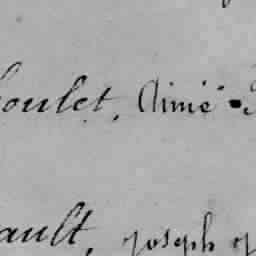 oulet, Aimé
ault, joseph